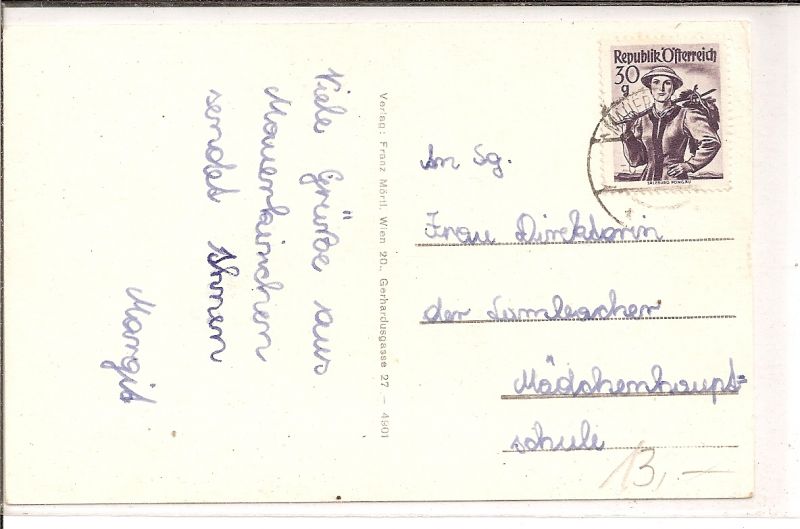 Viele Grüße aus
Mauerkirchen
sendet Ihnen
Margit
Verlag: Franz Mörtl, Wien 20., Gerhardusgasse 27 — 4801
Republik Österreich
30
g
SALZBURG PONGAU
An Sg.
Frau Direktorin
der
Mädchenhaupt=
schule
13,—